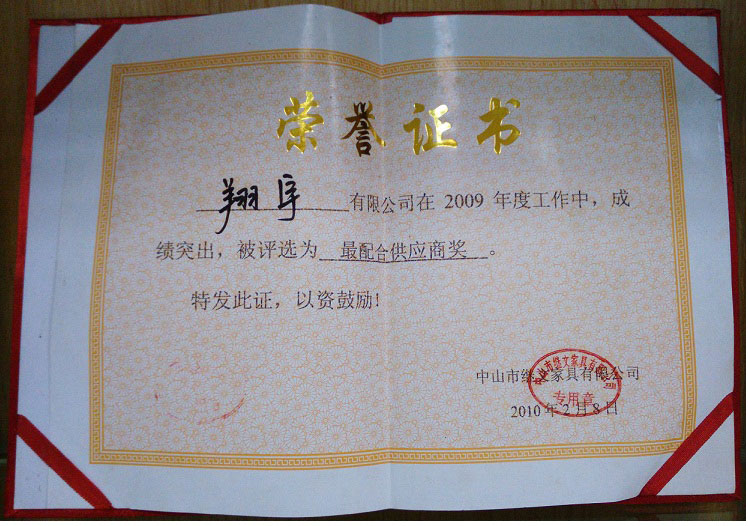 荣誉证书
翔阜有限公司在 2009 年度工作中，成
绩突出，被评选为 最配合供应商奖 。
特发此证，以资鼓励！
中山市继文家具有限公司
2010 年 2 月 8 日
中山市继文家具有限公司
专用章